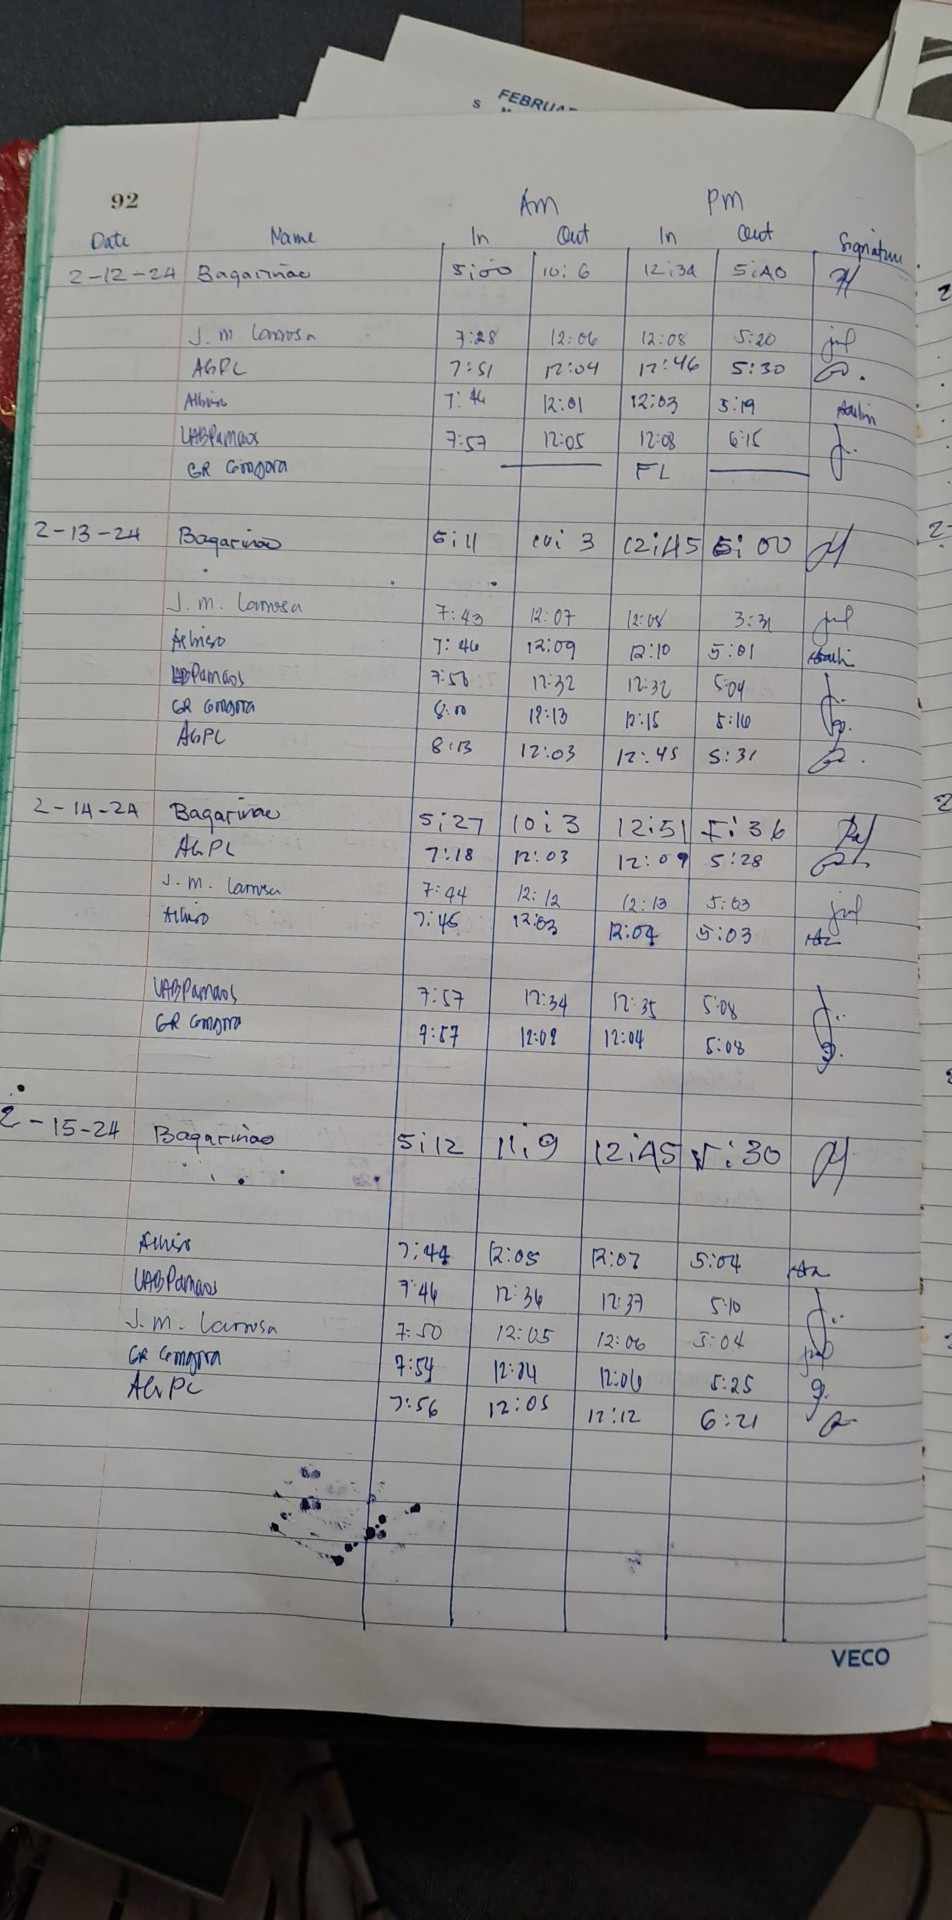 FEBRUA
S
92
AM PM
Date Name In Out In Out Signature
2-12-24 Bagarinao 5:00 10:6 12:34 5:40
J. M. Larrosa 7:28 12:06 12:08 5:20
AGPC 7:51 12:04 12:46 5:30
Albiso 7:46 12:01 12:03 5:19
UABPamaos 7:57 12:05 12:08 6:15
GR Gongora FL
2-13-24 Bagarinao 5:11 10:3 12:45 5:00
J. M. Larrosa 7:43 12:07 12:08 3:31
Albiso 7:46 12:09 12:10 5:01
UABPamaos 7:58 12:32 12:32 5:04
GR Gongora 8:00 12:13 12:15 5:16
AGPC 8:13 12:03 12:45 5:31
2-14-24 Bagarinao 5:27 10:3 12:51 5:36
AGPC 7:18 12:03 12:09 5:28
J. M. Larrosa 7:44 12:12 12:13 5:03
Albiso 7:45 12:03 12:04 5:03
UABPamaos 7:57 12:34 12:35 5:08
GR Gongora 7:57 12:02 12:04 5:08
2-15-24 Bagarinao 5:12 11:9 12:45 5:30
Albiso 7:44 12:05 12:07 5:04
UABPamaos 7:46 12:36 12:37 5:10
J. M. Larrosa 7:50 12:05 12:06 5:04
GR Gongora 7:54 12:04 12:06 5:25
AGPC 7:56 12:05 12:12 6:21
VECO